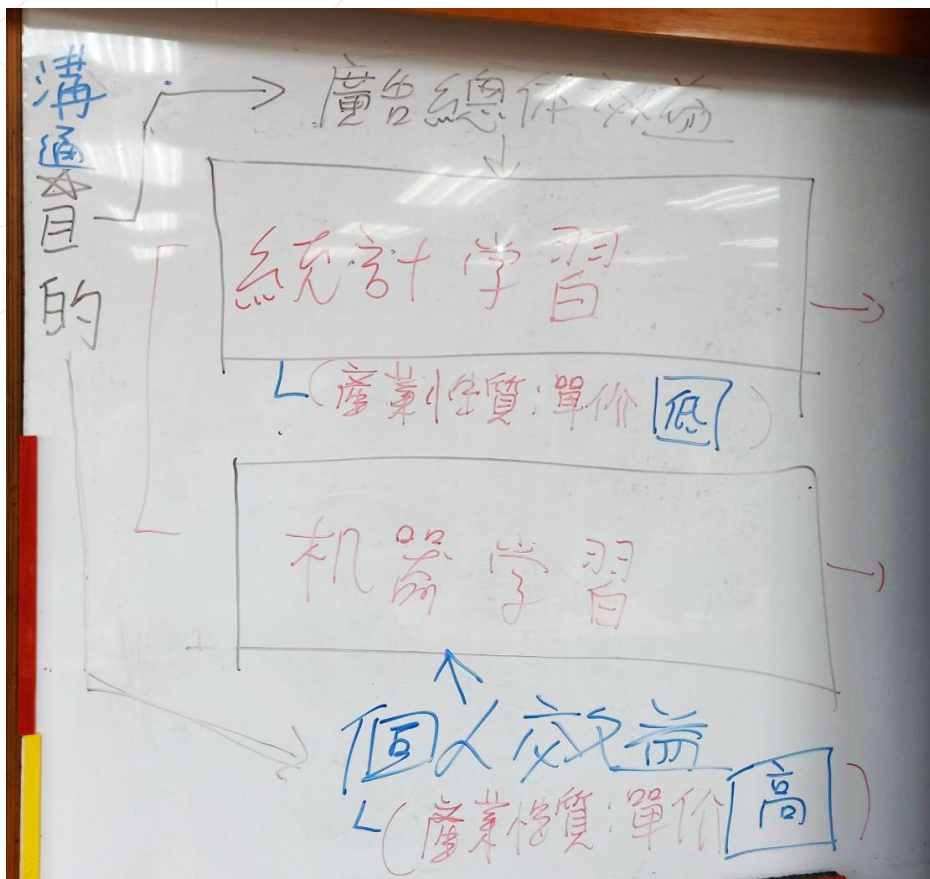 溝通目的
廣告總体效益
統計学習
(產業性質:單价低)
机器学習
個人效益
(產業性質:單价高)